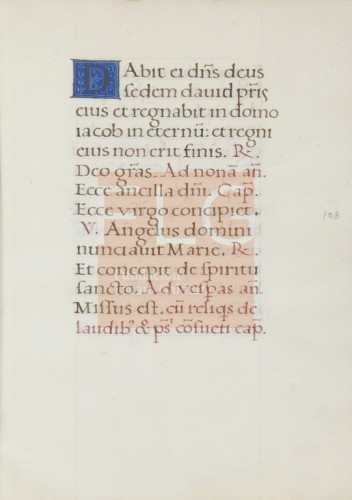 DAbit ei dñs deus
sedem dauid pr̃is
eius et regnabit in domo
iacob in eternũ: et regni
eius non erit finis. R.
Deo grãs. Ad nonã añ.
Ecce ancilla dñi. Cap̃.
Ecce virgo concipiet.
V. Angelus domini
nunciauit Marie. R.
Et concepit de spiritu
sancto. Ad vesp̃as añ.
Missus est. cũ reliq̃s de
laudib' & ps̃ cõsueti cap̃.
108